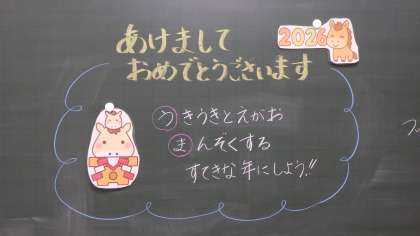 あけまして
おめでとうございます
2026
うきうきとえがお
まんぞくする
すてきな年にしよう!!